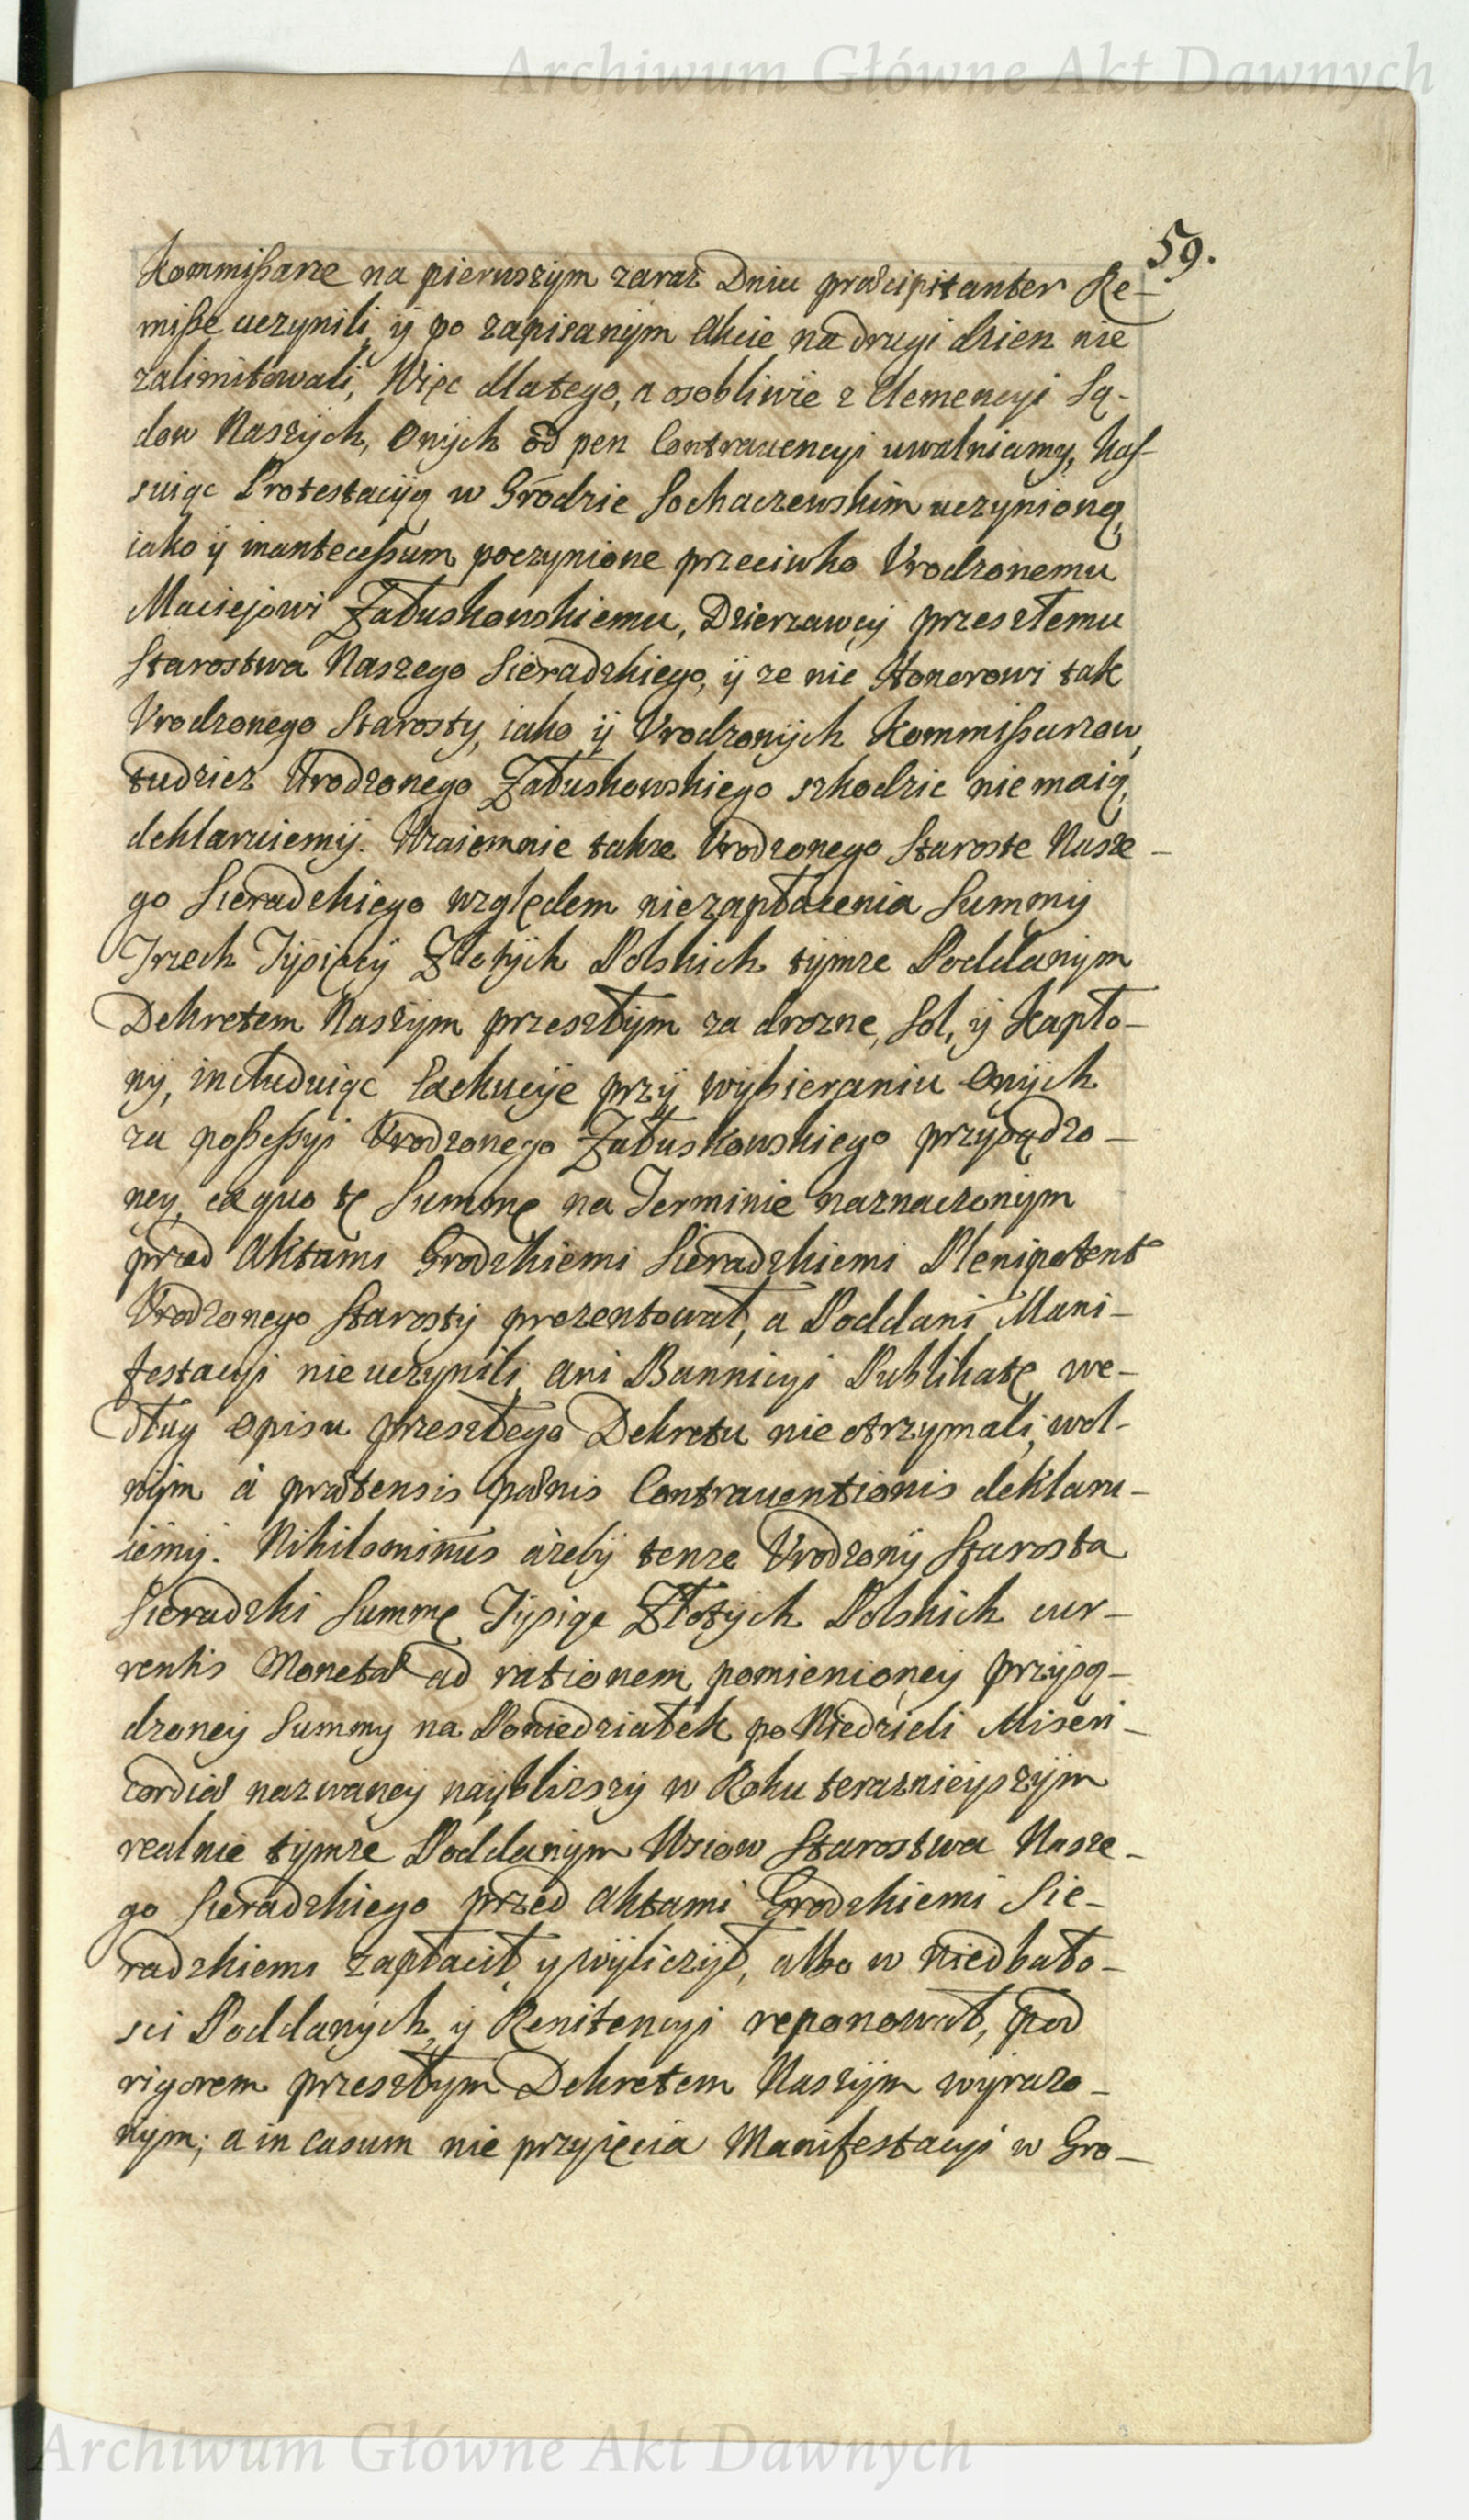 Archiwum Główne Akt Dawnych
59.
Kommißarze na pierwszym zaraz Dniu præcipitanter Re-
miße uczynili, ÿ po zapisanÿm Akcie na drugi dzien nie
zalimitowali, Więc dlatego, a osobliwie z Clemencyi Są-
dow Naszÿch, Onÿch od pen Contravencyi uwalniamy, Kas-
suiąc Protestacÿą w Grodzie Sochaczewskim uczynioną,
iako ÿ inanteceßum poczynione przeciwko Vrodzonemu
Maciejowi Załuskowskiemu, Dzierzawcÿ przeszłemu
Starostwa Naszego Sieradzkiego, ÿ ze nic Honorowi tak
Vrodzonego Starosty, iako ÿ Vrodzonÿch Kommißarzow,
tudziez Urodzonego Załuskowskiego szkodzic nie maią,
deklaruiemÿ. Wzaiemnie takze Vrodzonego Staroste Nasze-
go Sieradzkiego względem niezapłacenia Summÿ
Trzech Tÿsięcÿ Złotÿch Polskich tÿmze Poddanÿm
Dekretem Naszÿm przeszłÿm za drozne, Sol, ÿ Kapło-
nÿ, includuiąc Exekucÿe przÿ wÿbieraniu Onÿch
za poßeßyi Vrodzonego Załuskowskiego przysądzo-
ney, ex quo tę Summę na Terminie naznaczonÿm
przed Aktami Grodzkiemi Sieradzkiemi Plenipotent
Vrodzonego Starostÿ prezentował, a Poddani Mani-
festacyi nie uczynili, ani Bannicyi Publikatę we-
dług Opisu przeszłego Dekretu nie otrzymali, wol-
nÿm à prætensis pœnis Contraventionis deklaru-
iemÿ. Nihilominus ażebÿ tenze Vrodzonÿ Starosta
Sieradzki Summę Tÿsiąc Złotÿch Polskich cur-
rentis Monetæ ad rationem pomienioneÿ przÿsą-
dzoneÿ Summy na Poniedziałek po Niedzieli Miseri-
cordiæ nazwaneÿ naÿblizszÿ w Roku teraznieÿszÿm
realnie tÿmze Poddanÿm Wsiow Starostwa Nasze-
go Sieradzkiego przed Aktami Grodzkiemi Sie-
radzkiemi zapłacił, y wÿliczÿł, albo w niedbało-
sci Poddanÿch, ÿ Renitencyi reponował, pod
rigorem przeszłym Dekretem Naszÿm wÿrazo-
nÿm; a in casum nie przyięcia Manifestacyi w Gro-
Archiwum Główne Akt Dawnych